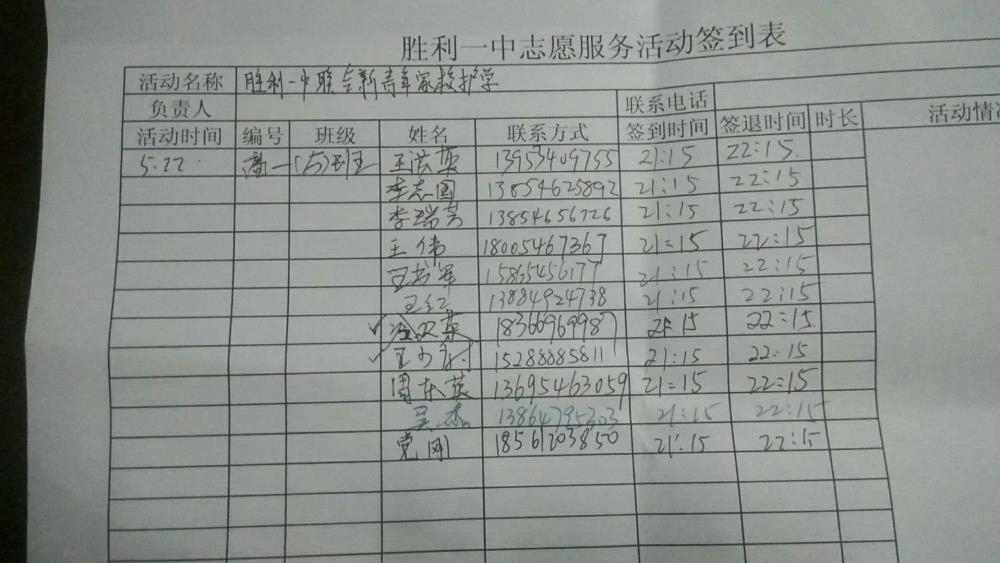 胜利一中志愿服务活动签到表
活动名称 胜利一中联合新青年家校护学
负责人 联系电话
活动时间 编号 班级 姓名 联系方式 签到时间 签退时间 时长 活动情
5.22. 高一(5)班 王洪英 13953409755 21:15 22:15.
李志国 13854625892 21:15 22:15
李瑞芳 13854656726 21:15 22:15
王伟 18005467367 21:15 22:15
王书军 15865456177 21:15 22:15
王红 13884924738 21:15 22:15
英 18366969987 21:15 22:15.
王少 15288885811 21:15 22:15
周东英 13695463059 21:15 22:15
吴杰 13864795303 21:15 22:15
党刚 18561203850 21:15 22:15